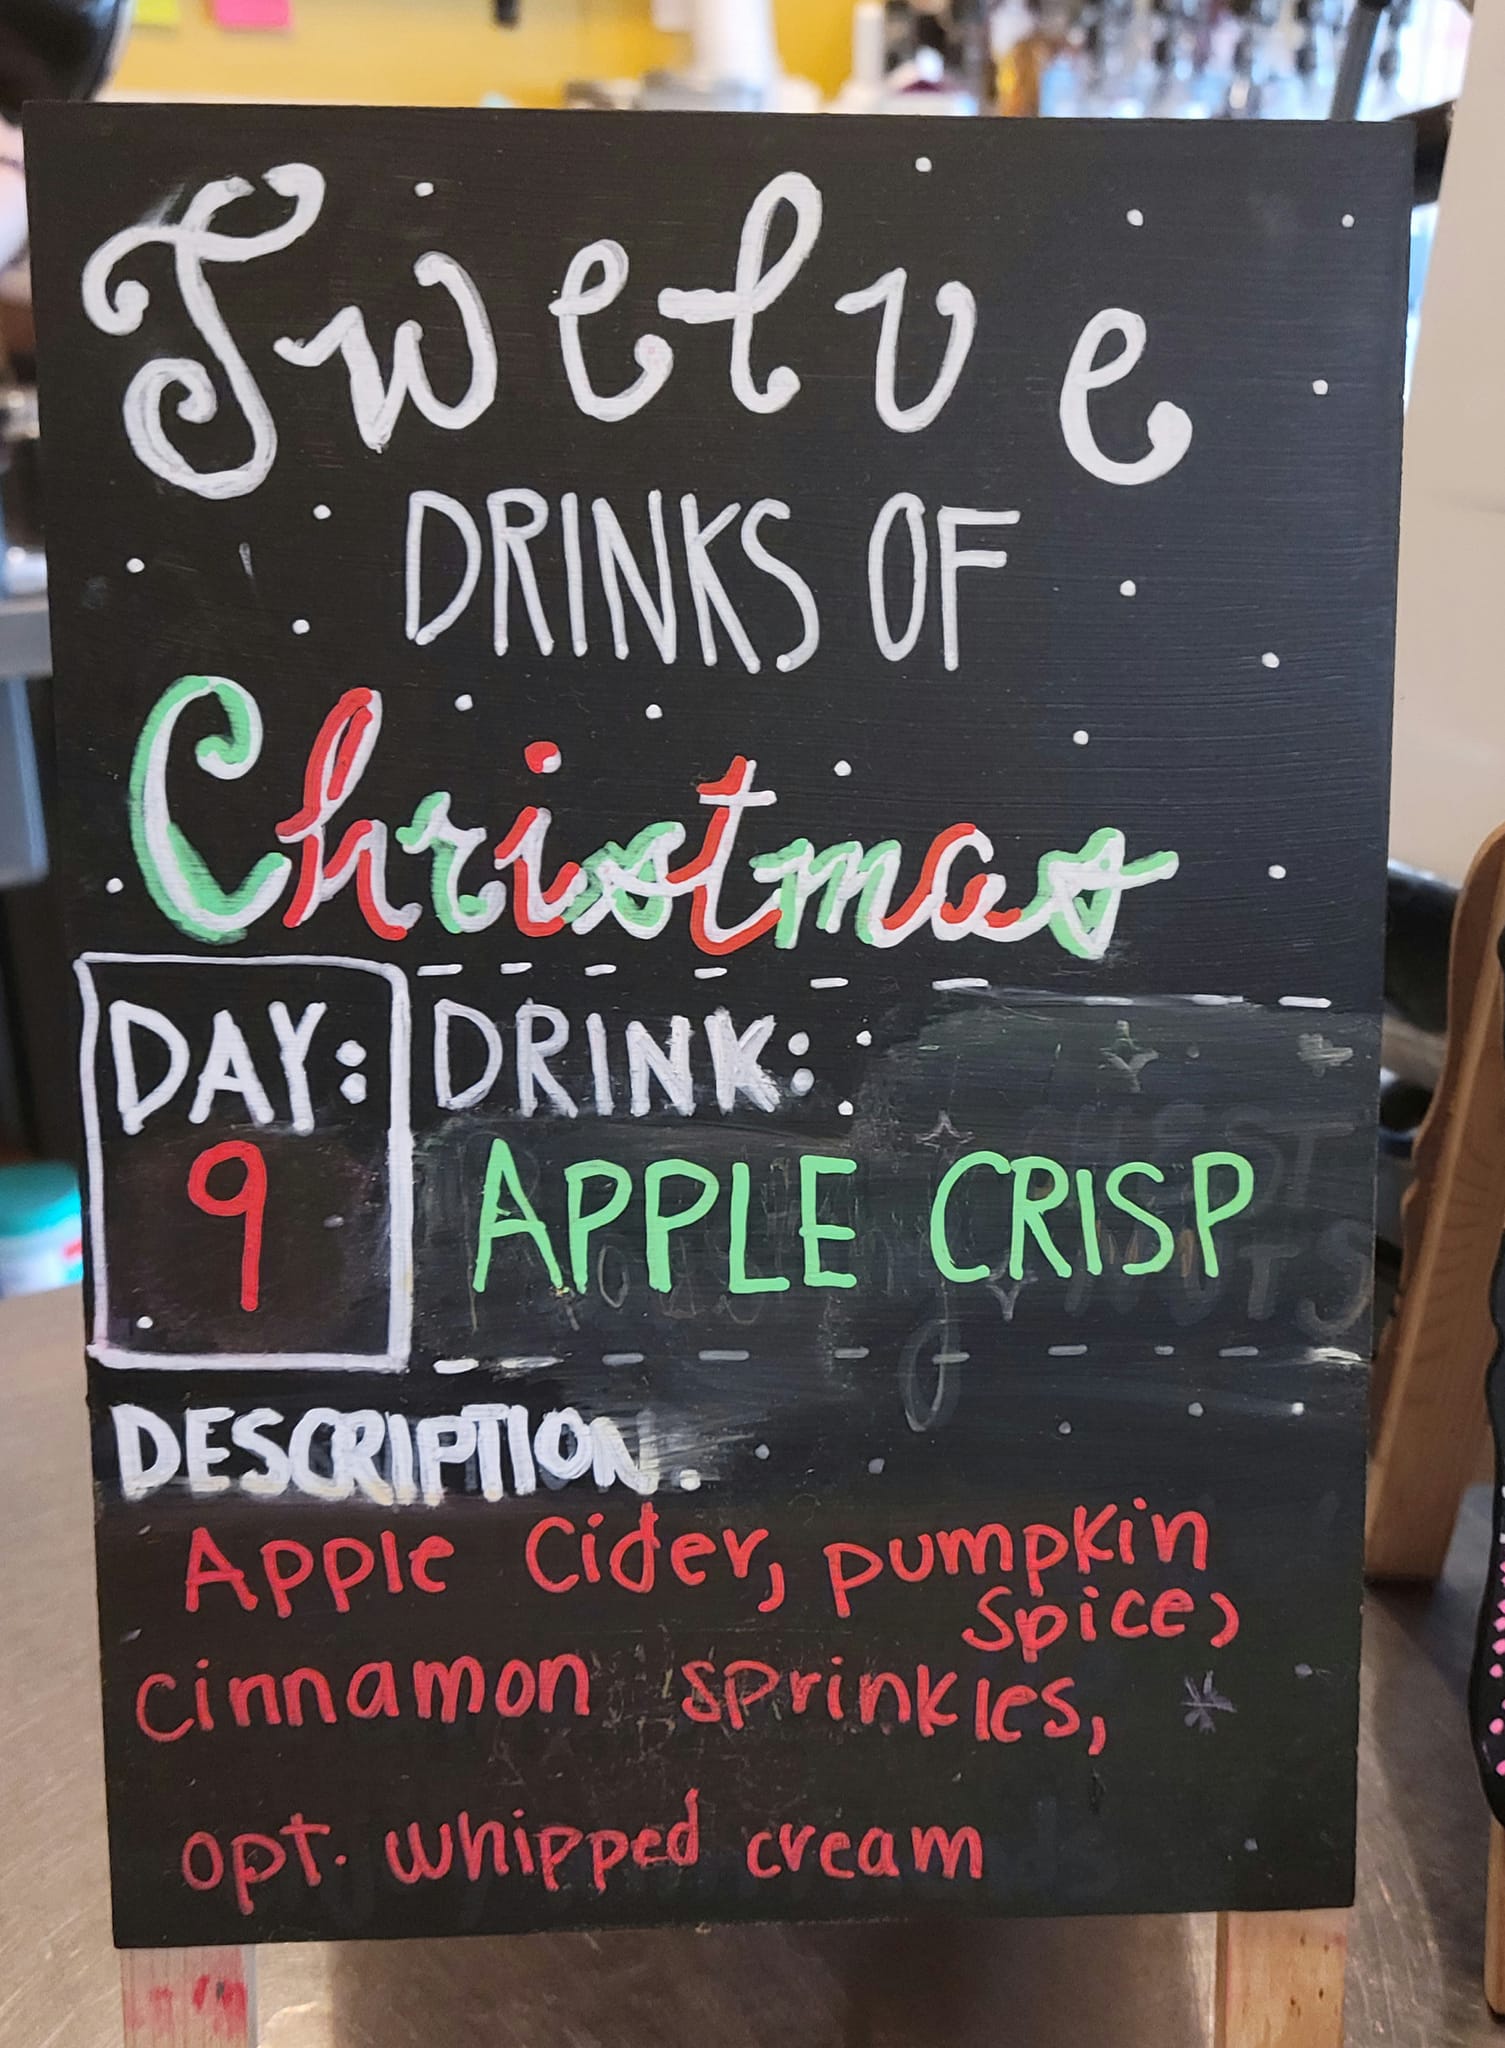 Twelve
DRINKS OF
Christmas
DAY:
9
DRINK:
APPLE CRISP
DESCRIPTION.
Apple Cider, pumpkin
spice,
cinnamon sprinkles,
opt. whipped cream